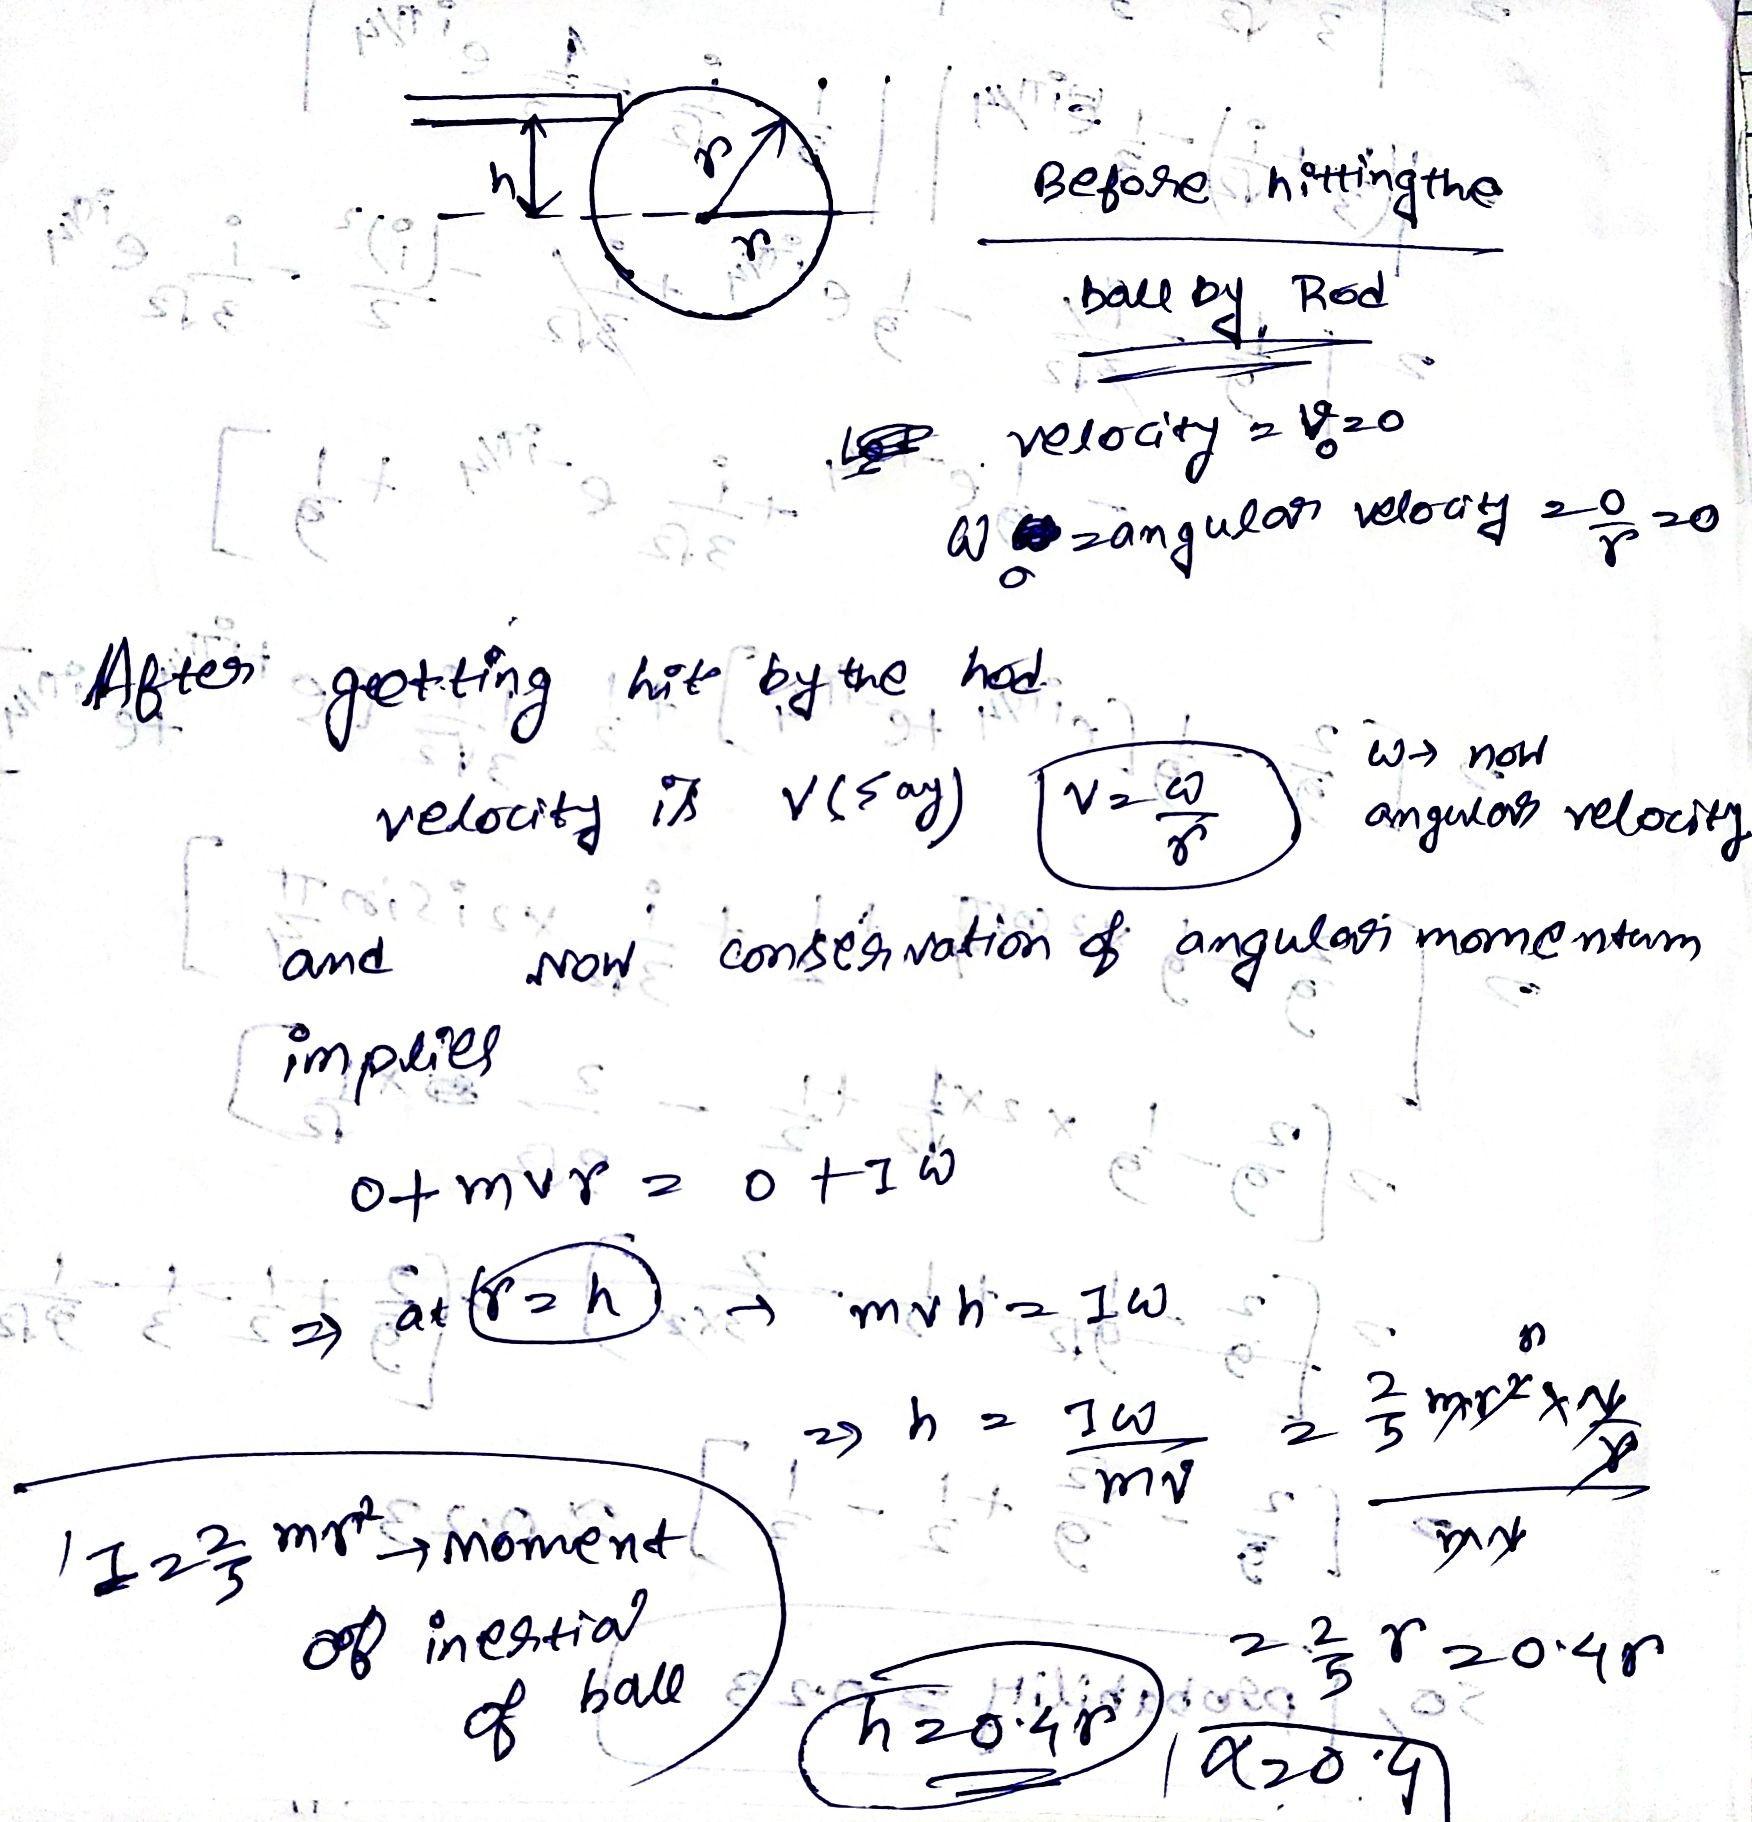 h
r
r
Before hitting the
ball by Rod
velocity = V₀ = 0
ω₀ = angular velocity = 0/r = 0
After getting hit by the hod
velocity is v (say) v = ω/r ω → now
angular velocity
and now conservation of angular momentum
implies
0 + mvr = 0 + Iω
⇒ at r = h → mvh = Iω
⇒ h = Iω/mv = 2/5 mr² × v/r / mv
r
I = 2/5 mr² → moment
of inertia
of ball
= 2/5 r = 0.4r
h = 0.4r
α = 0.4